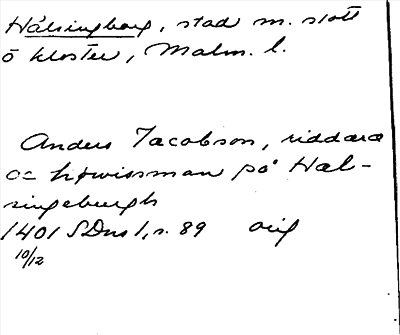 Hälsingborg, stad m. slott
o kloster, Malm. l.
Anders Jacobson, riddara
oc høwisman pa Hæl-
singeburgh
1401 SDns 1, s. 89 orig
10/12